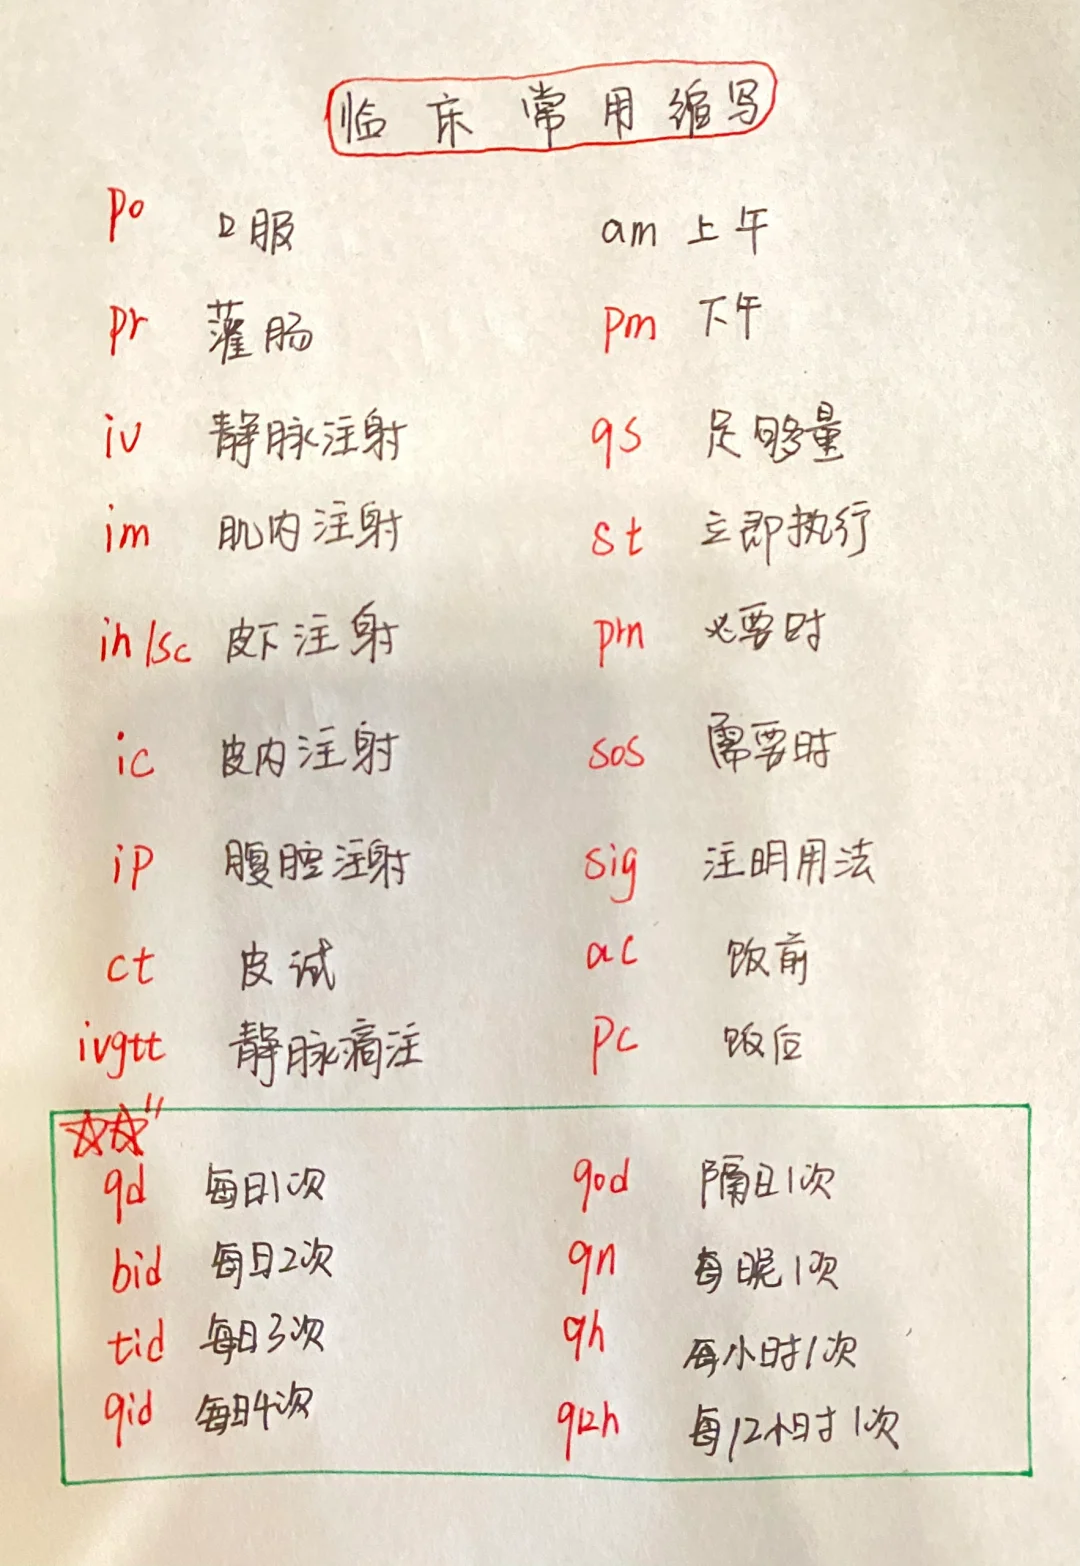 临床常用缩写
po 口服 am 上午
pr 灌肠 pm 下午
iv 静脉注射 qs 足够量
im 肌内注射 st 立即执行
ih/sc 皮下注射 prn 必要时
ic 皮内注射 sos 需要时
ip 腹腔注射 sig 注明用法
ct 皮试 ac 饭前
ivgtt 静脉滴注 pc 饭后
qd 每日1次 qod 隔日1次
bid 每日2次 qn 每晚1次
tid 每日3次 qh 每小时1次
qid 每日4次 q12h 每12小时1次